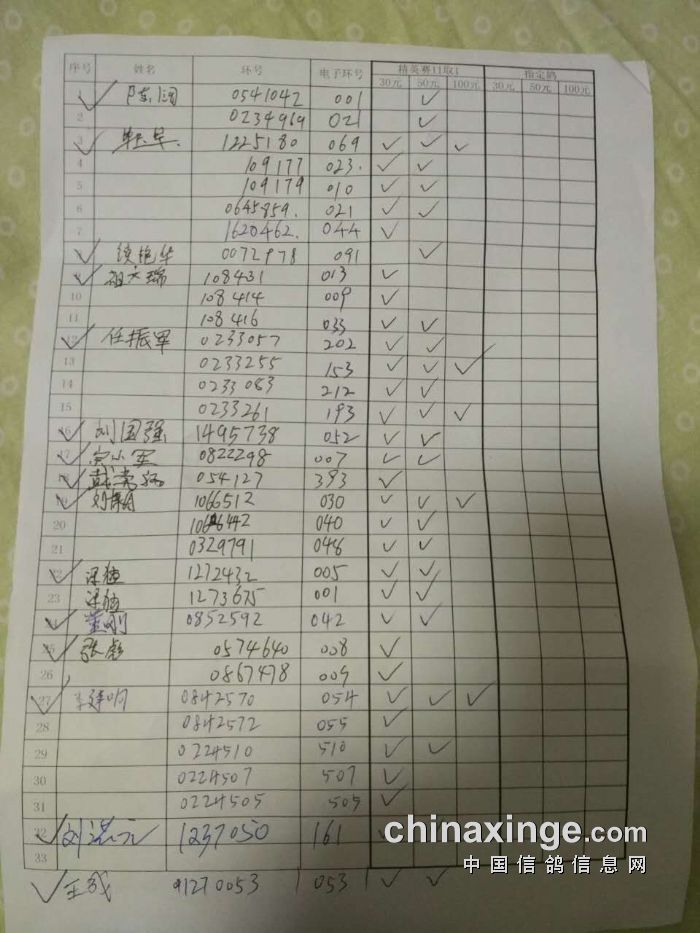 序号 姓名 环号 电子环号 精英赛11取1 指定鸽
30元 50元 100元 30元 50元 100元
1 陈 0541042 001 ✓
2 0234969 021 ✓
3 1225180 069 ✓ ✓ ✓
4 109177 023. ✓ ✓
5 109179 010 ✓ ✓
6 0645859. 021 ✓ ✓
7 1620462. 044 ✓
0072978 091 ✓
108431 013 ✓
10 108414 009 ✓
11 108416 033 ✓ ✓
12 任振军 0233057 202 ✓ ✓
13 0233255 153 ✓ ✓ ✓
14 0233083 212 ✓ ✓
15 0233261 193 ✓ ✓ ✓
16 刘国强 1495738 052 ✓ ✓
17 小军 0822298 007 ✓ ✓
18 054127 393 ✓
19 刘 1066512 030 ✓ ✓ ✓
20 040 ✓ ✓
21 0329791 048 ✓ ✓
22 1272432 005 ✓ ✓
23 1273675 001 ✓ ✓
24 董刚 0852592 042 ✓ ✓
25 张彪 0574640 008 ✓
26 0867478 009 ✓
27 0842570 054 ✓ ✓ ✓
28 0842572 055 ✓
29 0224510 510 ✓ ✓
30 0224507 507 ✓
31 0224505 505 ✓
32 刘 1237050 161 ✓
33
王 91270053 053 ✓ ✓
chinaxinge.com
中国信鸽信息网